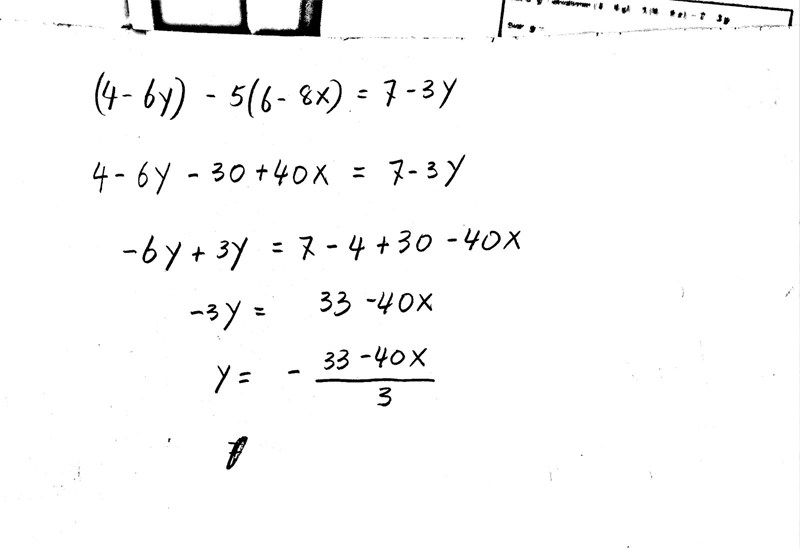 (4-6y) - 5(6-8x) = 7-3y
4-6y - 30 + 40x = 7-3y
-6y + 3y = 7 - 4 + 30 - 40x
-3y = 33 - 40x
y = - \frac{33-40x}{3}